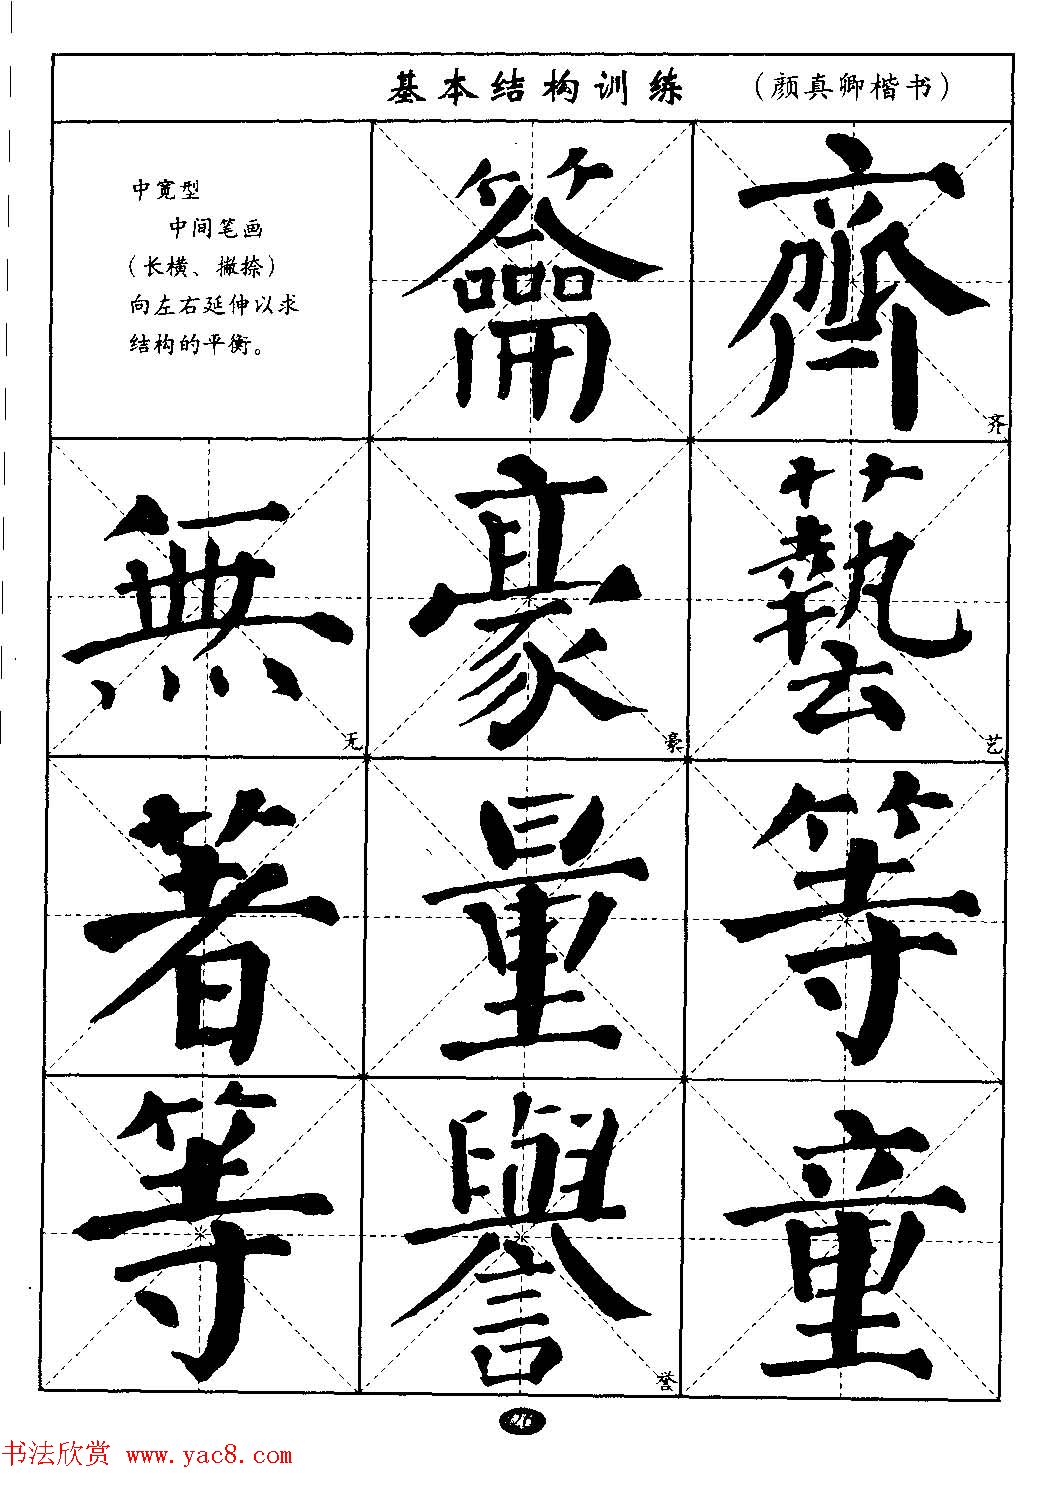 基本结构训练 （颜真卿楷书）
中宽型
中间笔画
（长横、撇捺）
向左右延伸以求
结构的平衡。
籥 齊
齐
無 豪 藝
无 豪 艺
著 量 等
等 譽 童
誉
26
书法欣赏 www.yac8.com